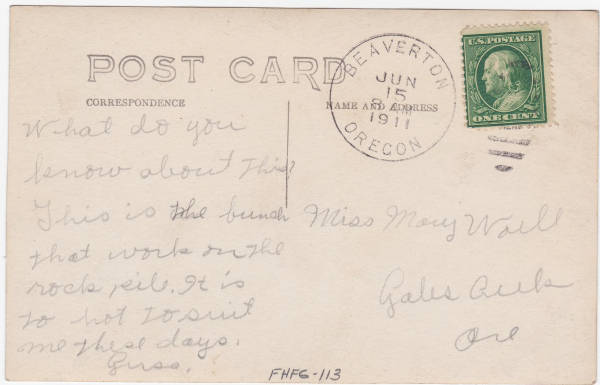 POST CARD
CORRESPONDENCE
NAME AND ADDRESS
BEAVERTON
JUN
15
1911
OREGON
U.S. POSTAGE
ONE CENT
What do you
know about this?
This is the bunch
that work on the
rock pile. It is
to hot to suit
me these days.
Miss Mary
Gales Creek
Ore
FHFG-113